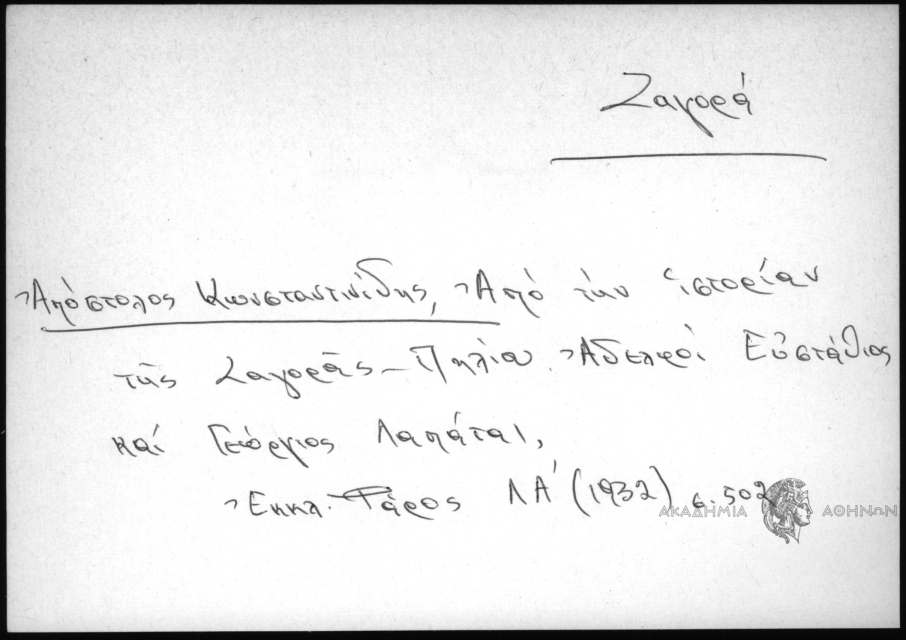 Ζαγορά
Ἀπόστολος Κωνσταντινίδης, Ἀπό τήν ἱστορίαν
τῆς Ζαγορᾶς - Πηλίου. Ἀδελφοί Εὐστάθιος
καί Γεώργιος Λαπάται,
Ἐκκλ. Φάρος ΛΑ' (1932) σ. 502
ΑΚΑΔΗΜΙΑ ΑΘΗΝΩΝ